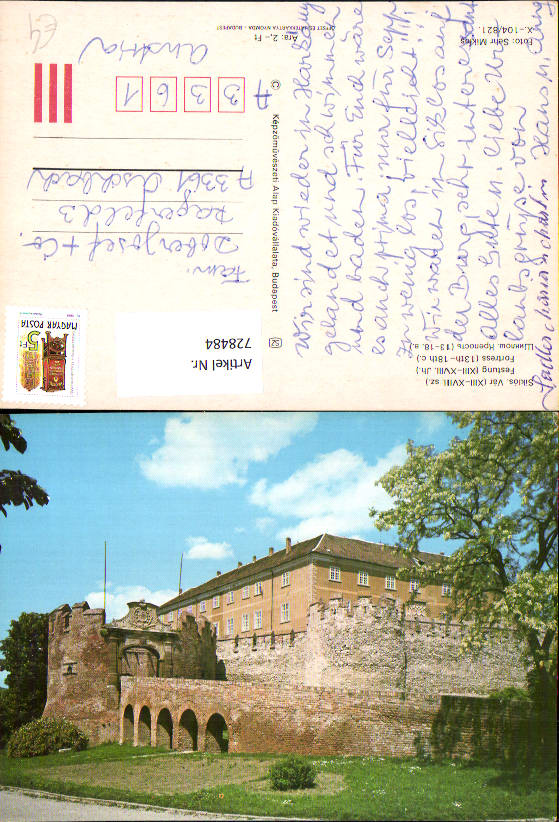 Siklós. Vár (XIII–XVIII. sz.)
Festung (XIII–XVIII. Jh.)
Fortress (13th–18th c.)
Шиклош. Крепость (13–18. в.)
Wir sind wieder in Harkany
gelandet und schwimmen
und baden. Für Euch wäre
es auch prima nur für Sepp
zu wenig los, vielleicht!!!!
Wir waren in Siklos auf
der Burg, sehr interessant
alles Gute u. liebe
von
Hans u.
Foto: Sehr Miklós
X.–104/821.
© Képzőművészeti Alap Kiadóvállalata, Budapest
52
Ára: 2,– Ft
OFFSET ÉS JÁTÉKKÁRTYA NYOMDA - BUDAPEST
MAGYAR POSTA
5 Ft
Artikel Nr.
728484
Fam.
Josef + Co
3
A 3361 Aschbach
A 3 3 6 1
Austria